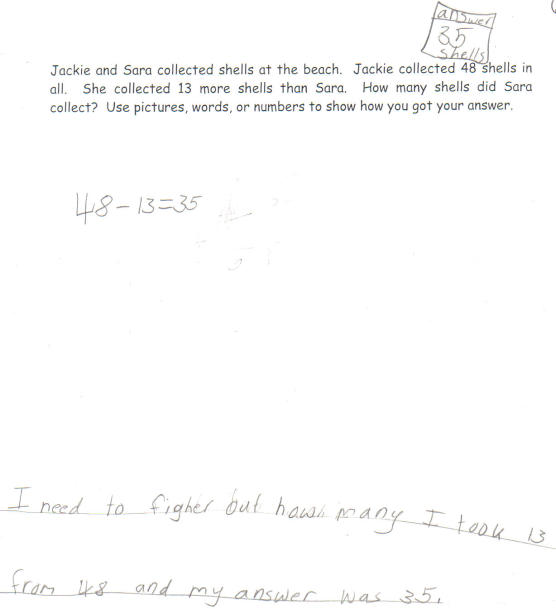 answer
35
shells
Jackie and Sara collected shells at the beach. Jackie collected 48 shells in
all. She collected 13 more shells than Sara. How many shells did Sara
collect? Use pictures, words, or numbers to show how you got your answer.
48-13=35
I need to figher out how many I took 13
from 48 and my answer was 35.